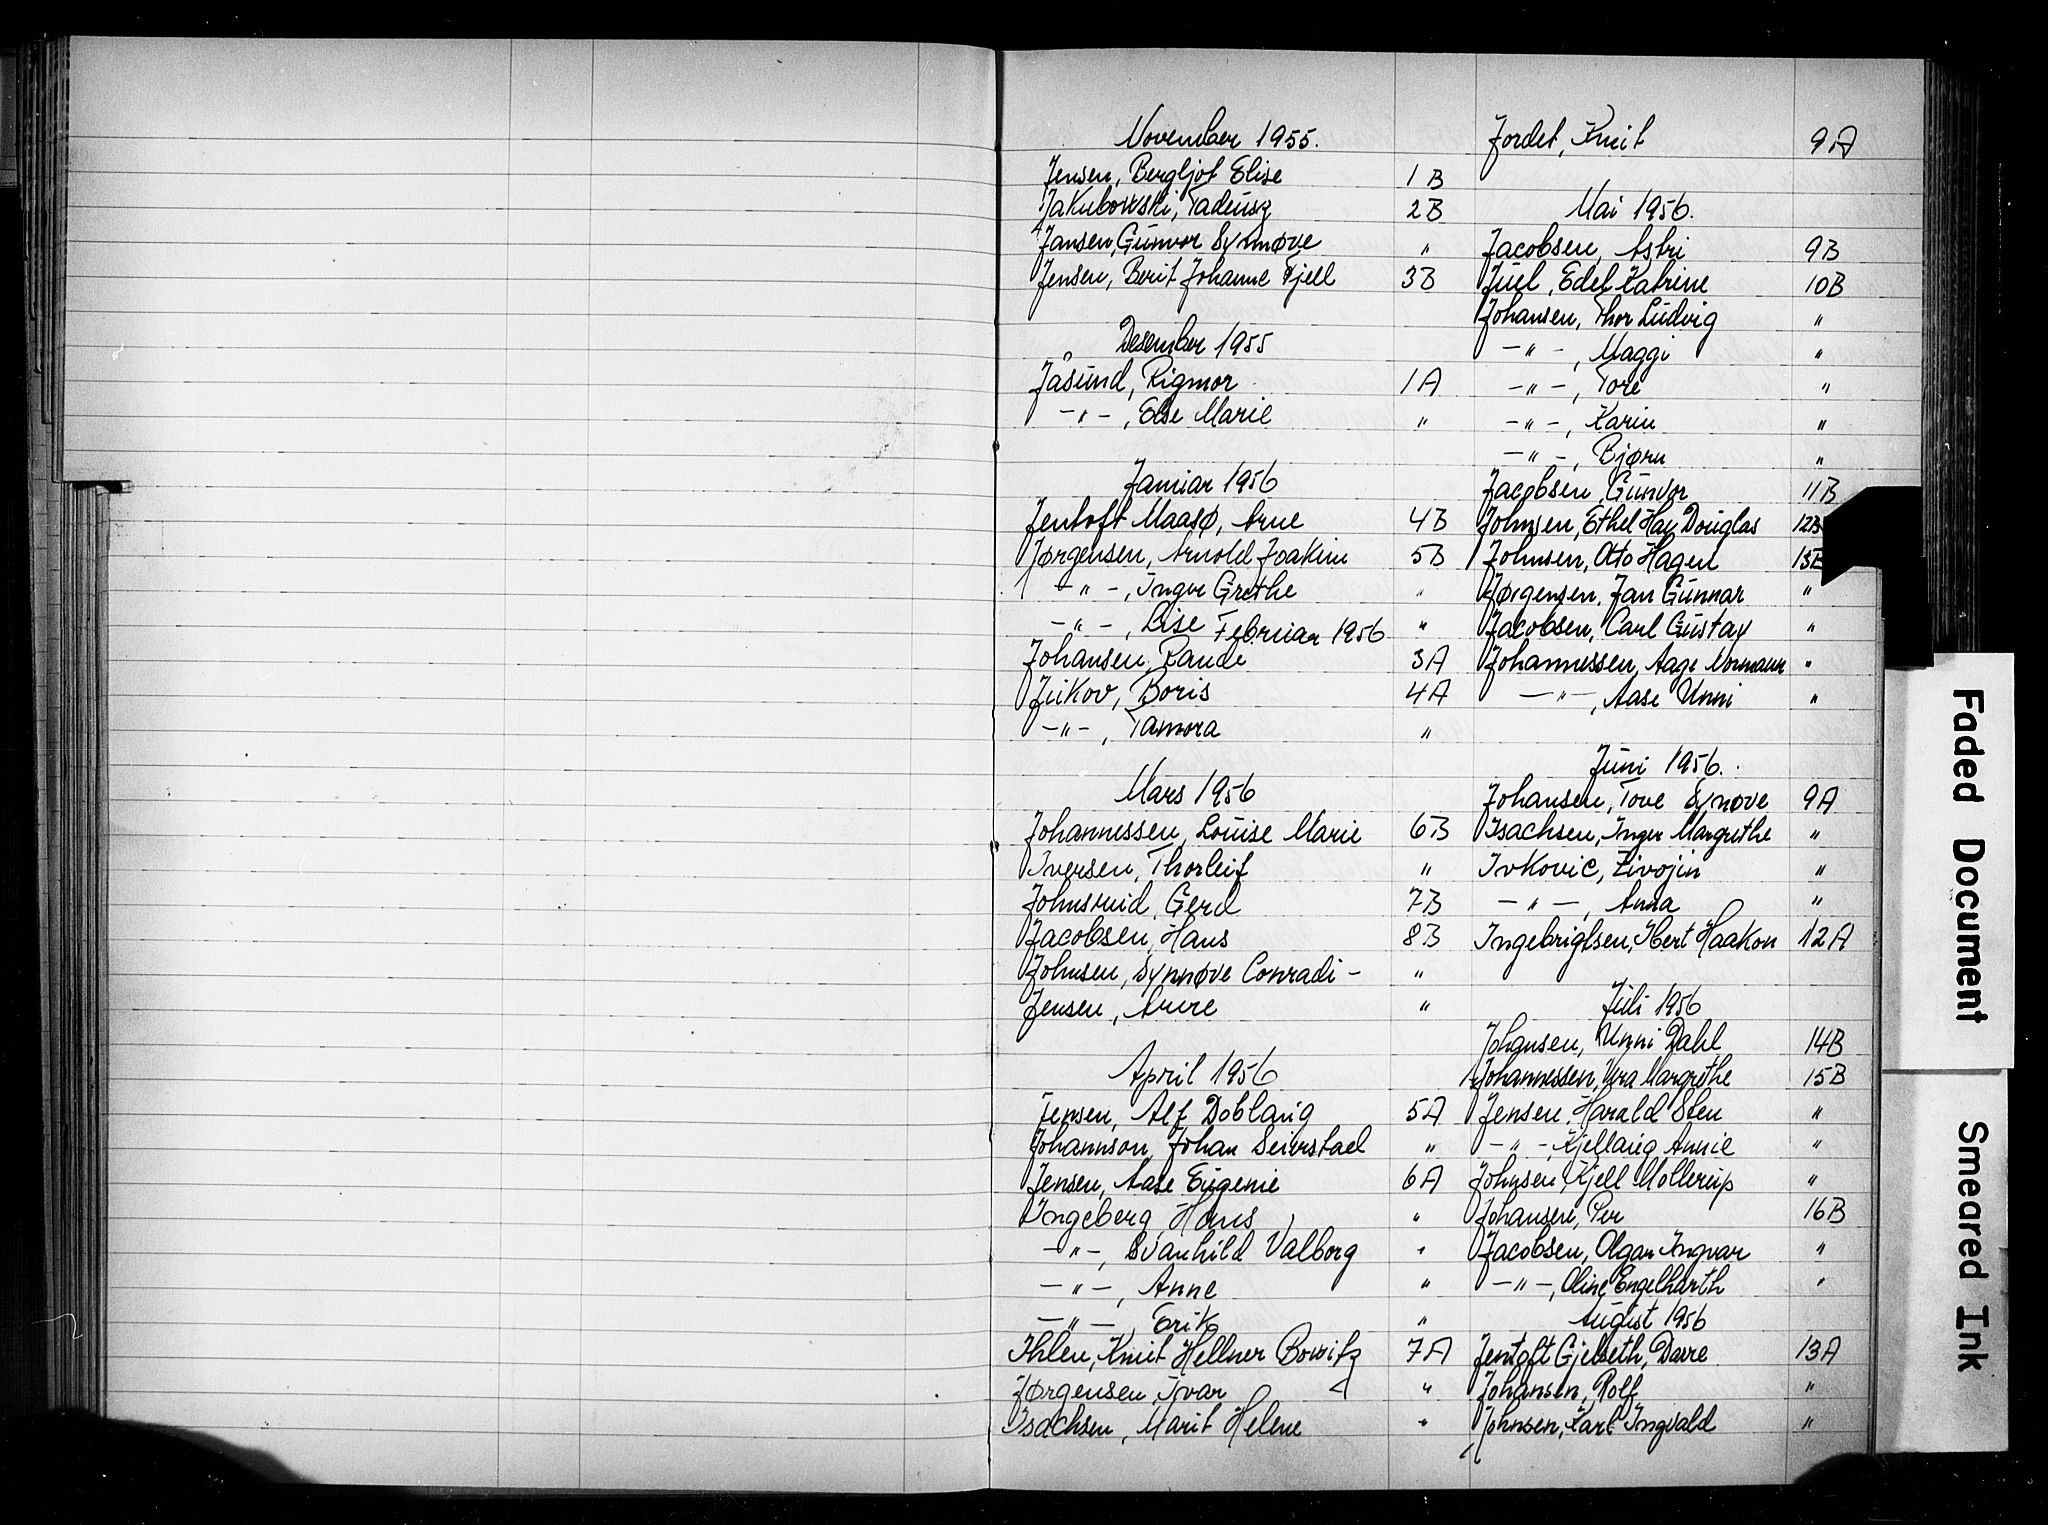 November 1955.
Jensen, Bergljot Elise 1B
Jakubowski, Tadeusz 2B
Jansen, Gunvor Synnøve "
Jensen, Berit Johanne Fjell 3B
Desember 1955
Jåsund, Rigmor 1A
-"-, Else Marie "
Januar 1956
Jentoft Maasø, Arne 4B
Jørgensen, Arnold Joakim 5B
-"-, Inger Grethe "
-"-, Lise "
Februar 1956
Johansen, Rande 3A
Jukov, Boris 4A
-"-, Tamora "
Mars 1956
Johannessen, Louise Marie 6B
Iversen, Thorleif "
Johnsrud, Gerd 7B
Jacobsen, Hans 8B
Johnsen, Synnøve Conradi- "
Jensen, Anne "
April 1956
Jensen, Alf Doblaug 5A
Johannson, Johan Seierstad "
Jensen, Aase Eugenie 6A
Ingeberg, Hans "
-"-, Svanhild Valborg "
-"-, Anne "
-"-, Erik "
Ihlen, Knut Hellner Bowitz 7A
Jørgensen, Ivar "
Isachsen, Marit Helene "
Jordet, Knut 9A
Mai 1956.
Jacobsen, Astri 9B
Juel, Edel Katrine 10B
Johansen, Thor Ludvig "
-"-, Maggi "
-"-, Tore "
-"-, Karin "
-"-, Bjørn "
Jacobsen, Gunvor 11B
Johnsen, Ethel Hay Douglas 12B
Johnsen, Otto Hagen 13B
Jørgensen, Jan Gunnar "
Jacobsen, Carl Gustav "
Johannessen, Aage Normann "
-"-, Aase Unni "
Juni 1956.
Johansen, Tove Synøve 9A
Isachsen, Inger Margrethe "
Ivkovic, Zivojin "
-"-, Anna "
Ingebrigtsen, Hert Haakon 12A
Juli 1956
Johansen, Unni Dahl 14B
Johannessen, Vera Margrethe 15B
Jensen, Harald Sten "
-"-, Kjellaug Annie "
Johnsen, Kjell Mollerup "
Johansen, Per 16B
Jacobsen, Olgar Ingvar "
-"-, Oline Engelharth "
August 1956
Jentoft Gjelseth, Davre 13A
Johansen, Rolf "
Johnsen, Karl Ingvald "
Faded Document
Smeared Ink